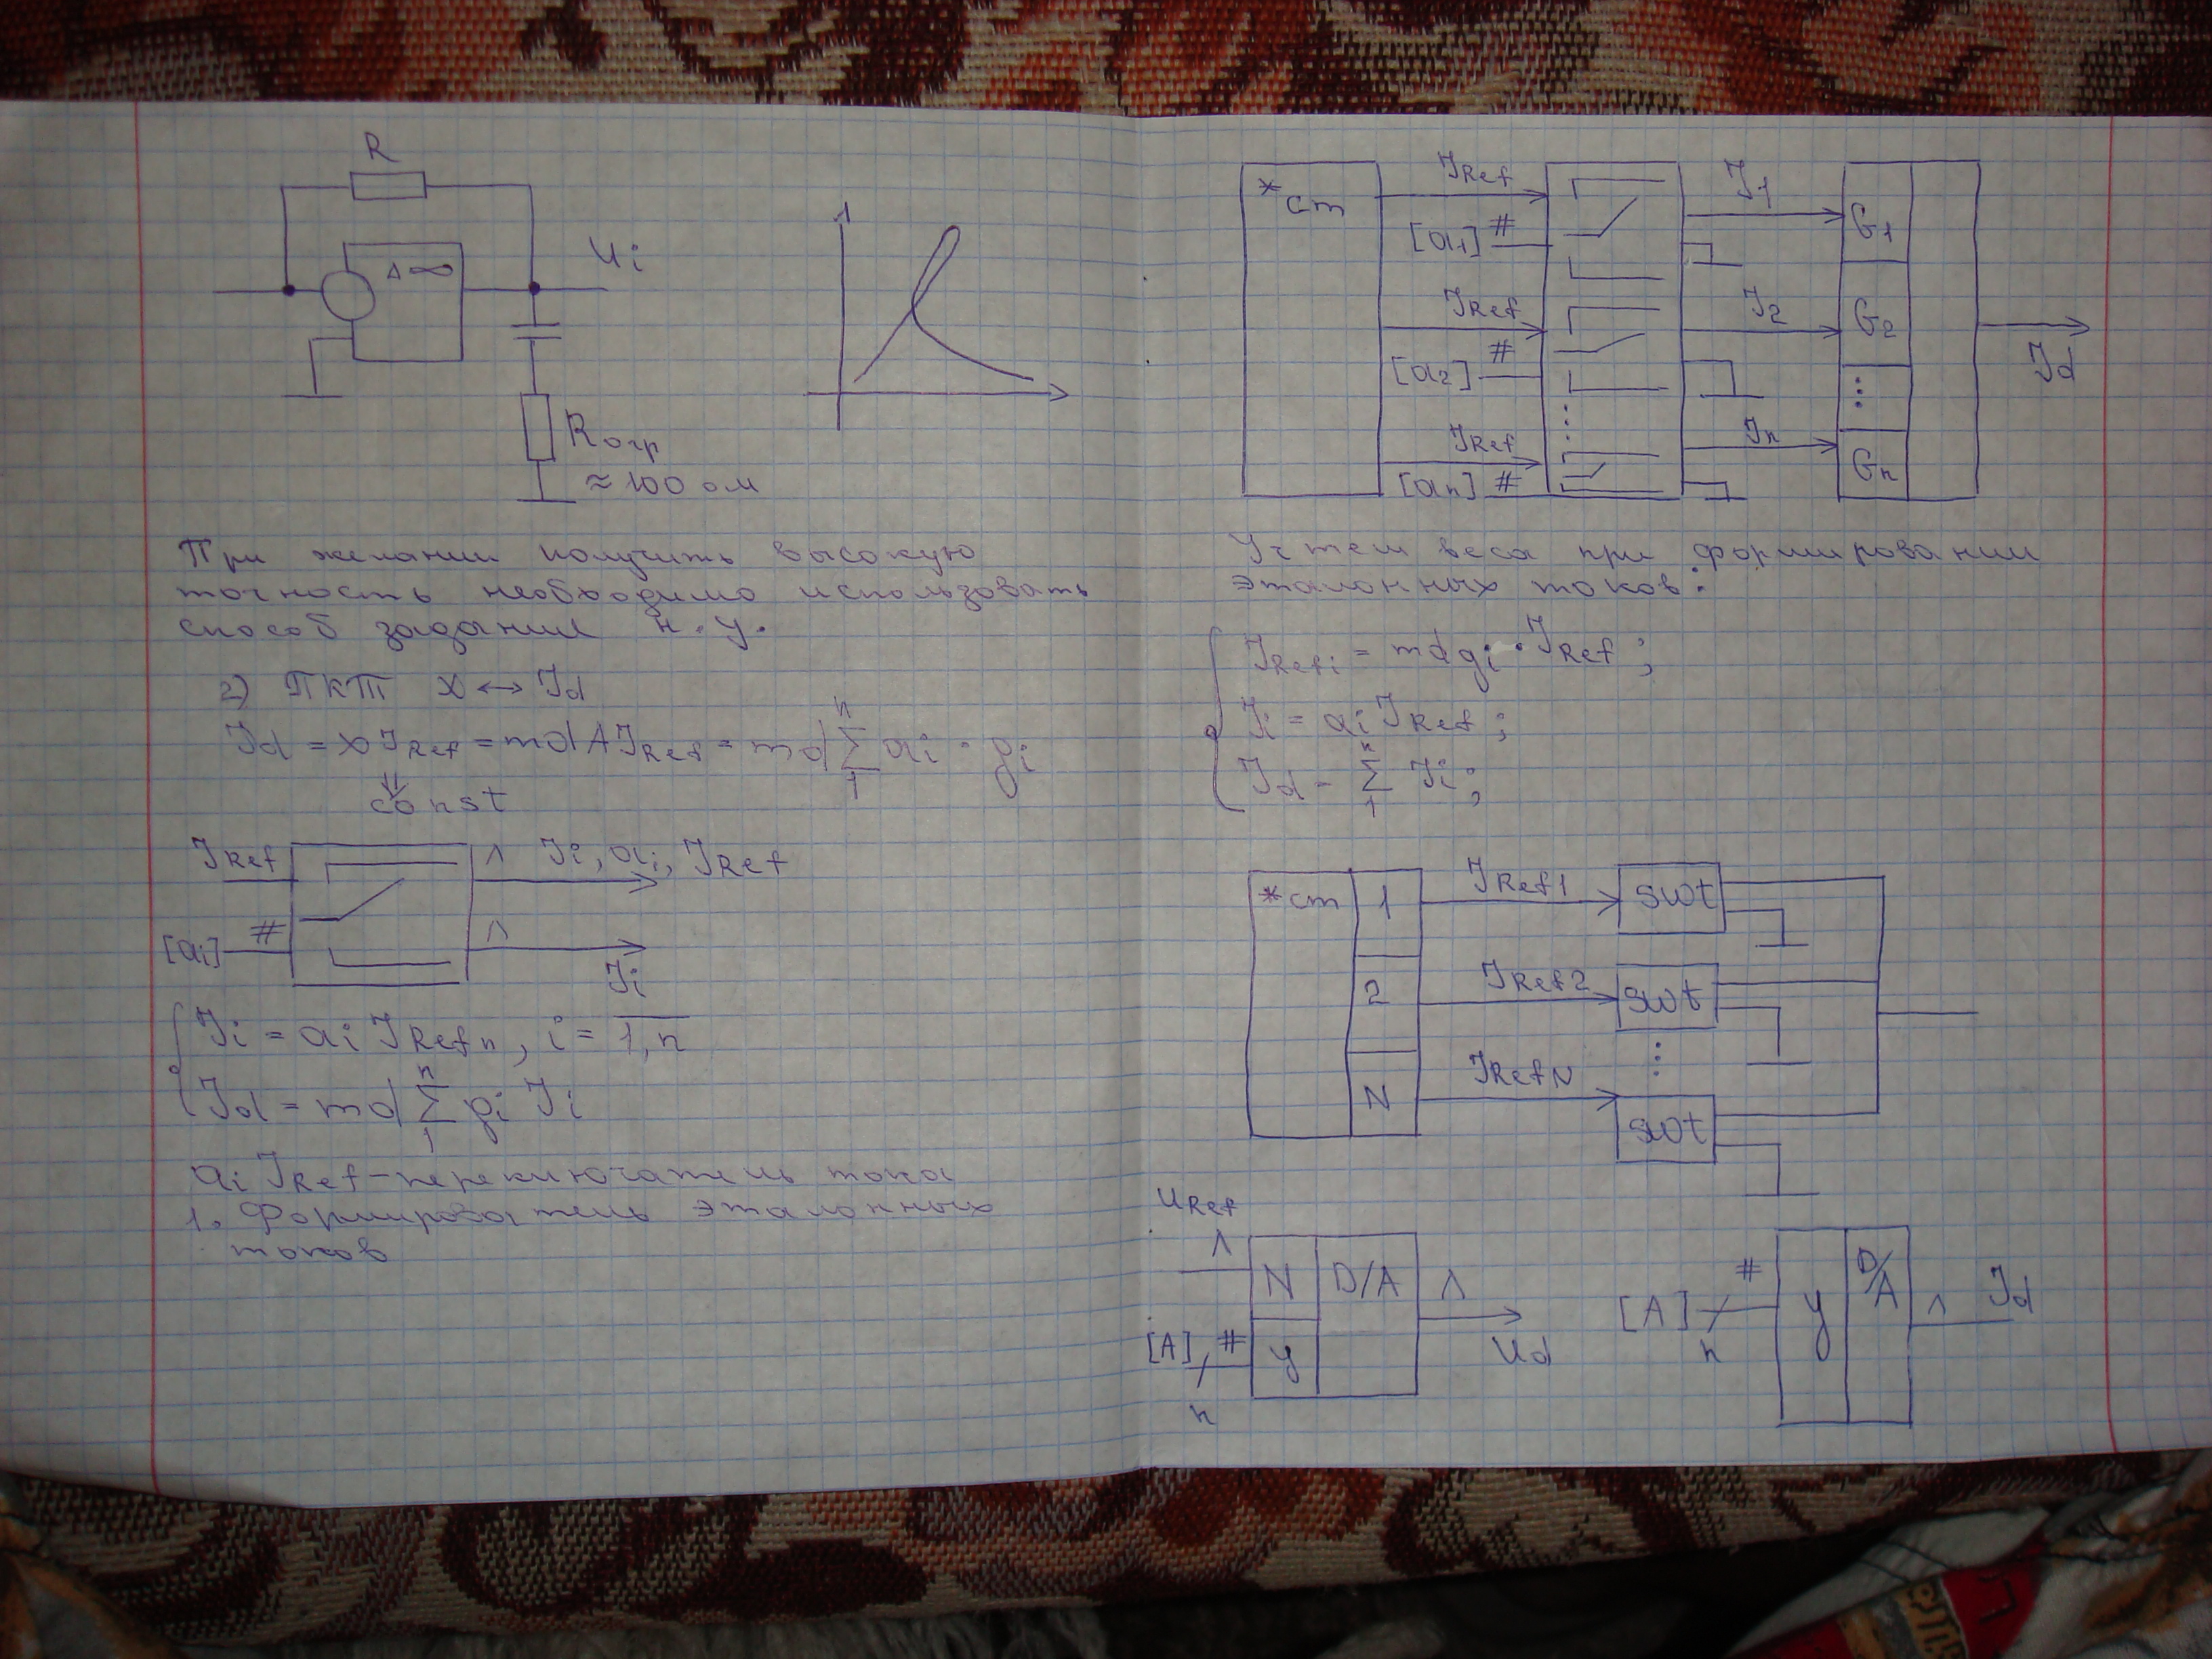 R
∞
Ui
Rогр
≈ 100 ом
При желании получить высокую
точность необходимо использовать
способ задания н.у.
2) ПКТ X ↔ Jd
Jd = x JRef = md A JRef = md Σ ai · gi
n
1
const
JRef
[ai] #
Λ Ji, ai, JRef
Λ
Ji
Ji = ai JRef n, i = 1,n
Jd = md Σ gi Ji
n
1
ai JRef – переключатель тока
1. Формирователь эталонных
токов
*cm
JRef
[a1] #
J1
G1
JRef
[a2] #
J2
G2
JRef
[an] #
Jn
Gn
Jd
Учтем веса при формировании
эталонных токов:
JRefi = md gi · JRef ;
Ji = ai JRef ;
Jd = Σ Ji ;
n
1
*cm 1 JRef1 swt
2 JRef2 swt
N JRefN swt
URef
Λ N D/A Λ
[A] # y Ud
n
[A] # y D/A Λ Jd
n